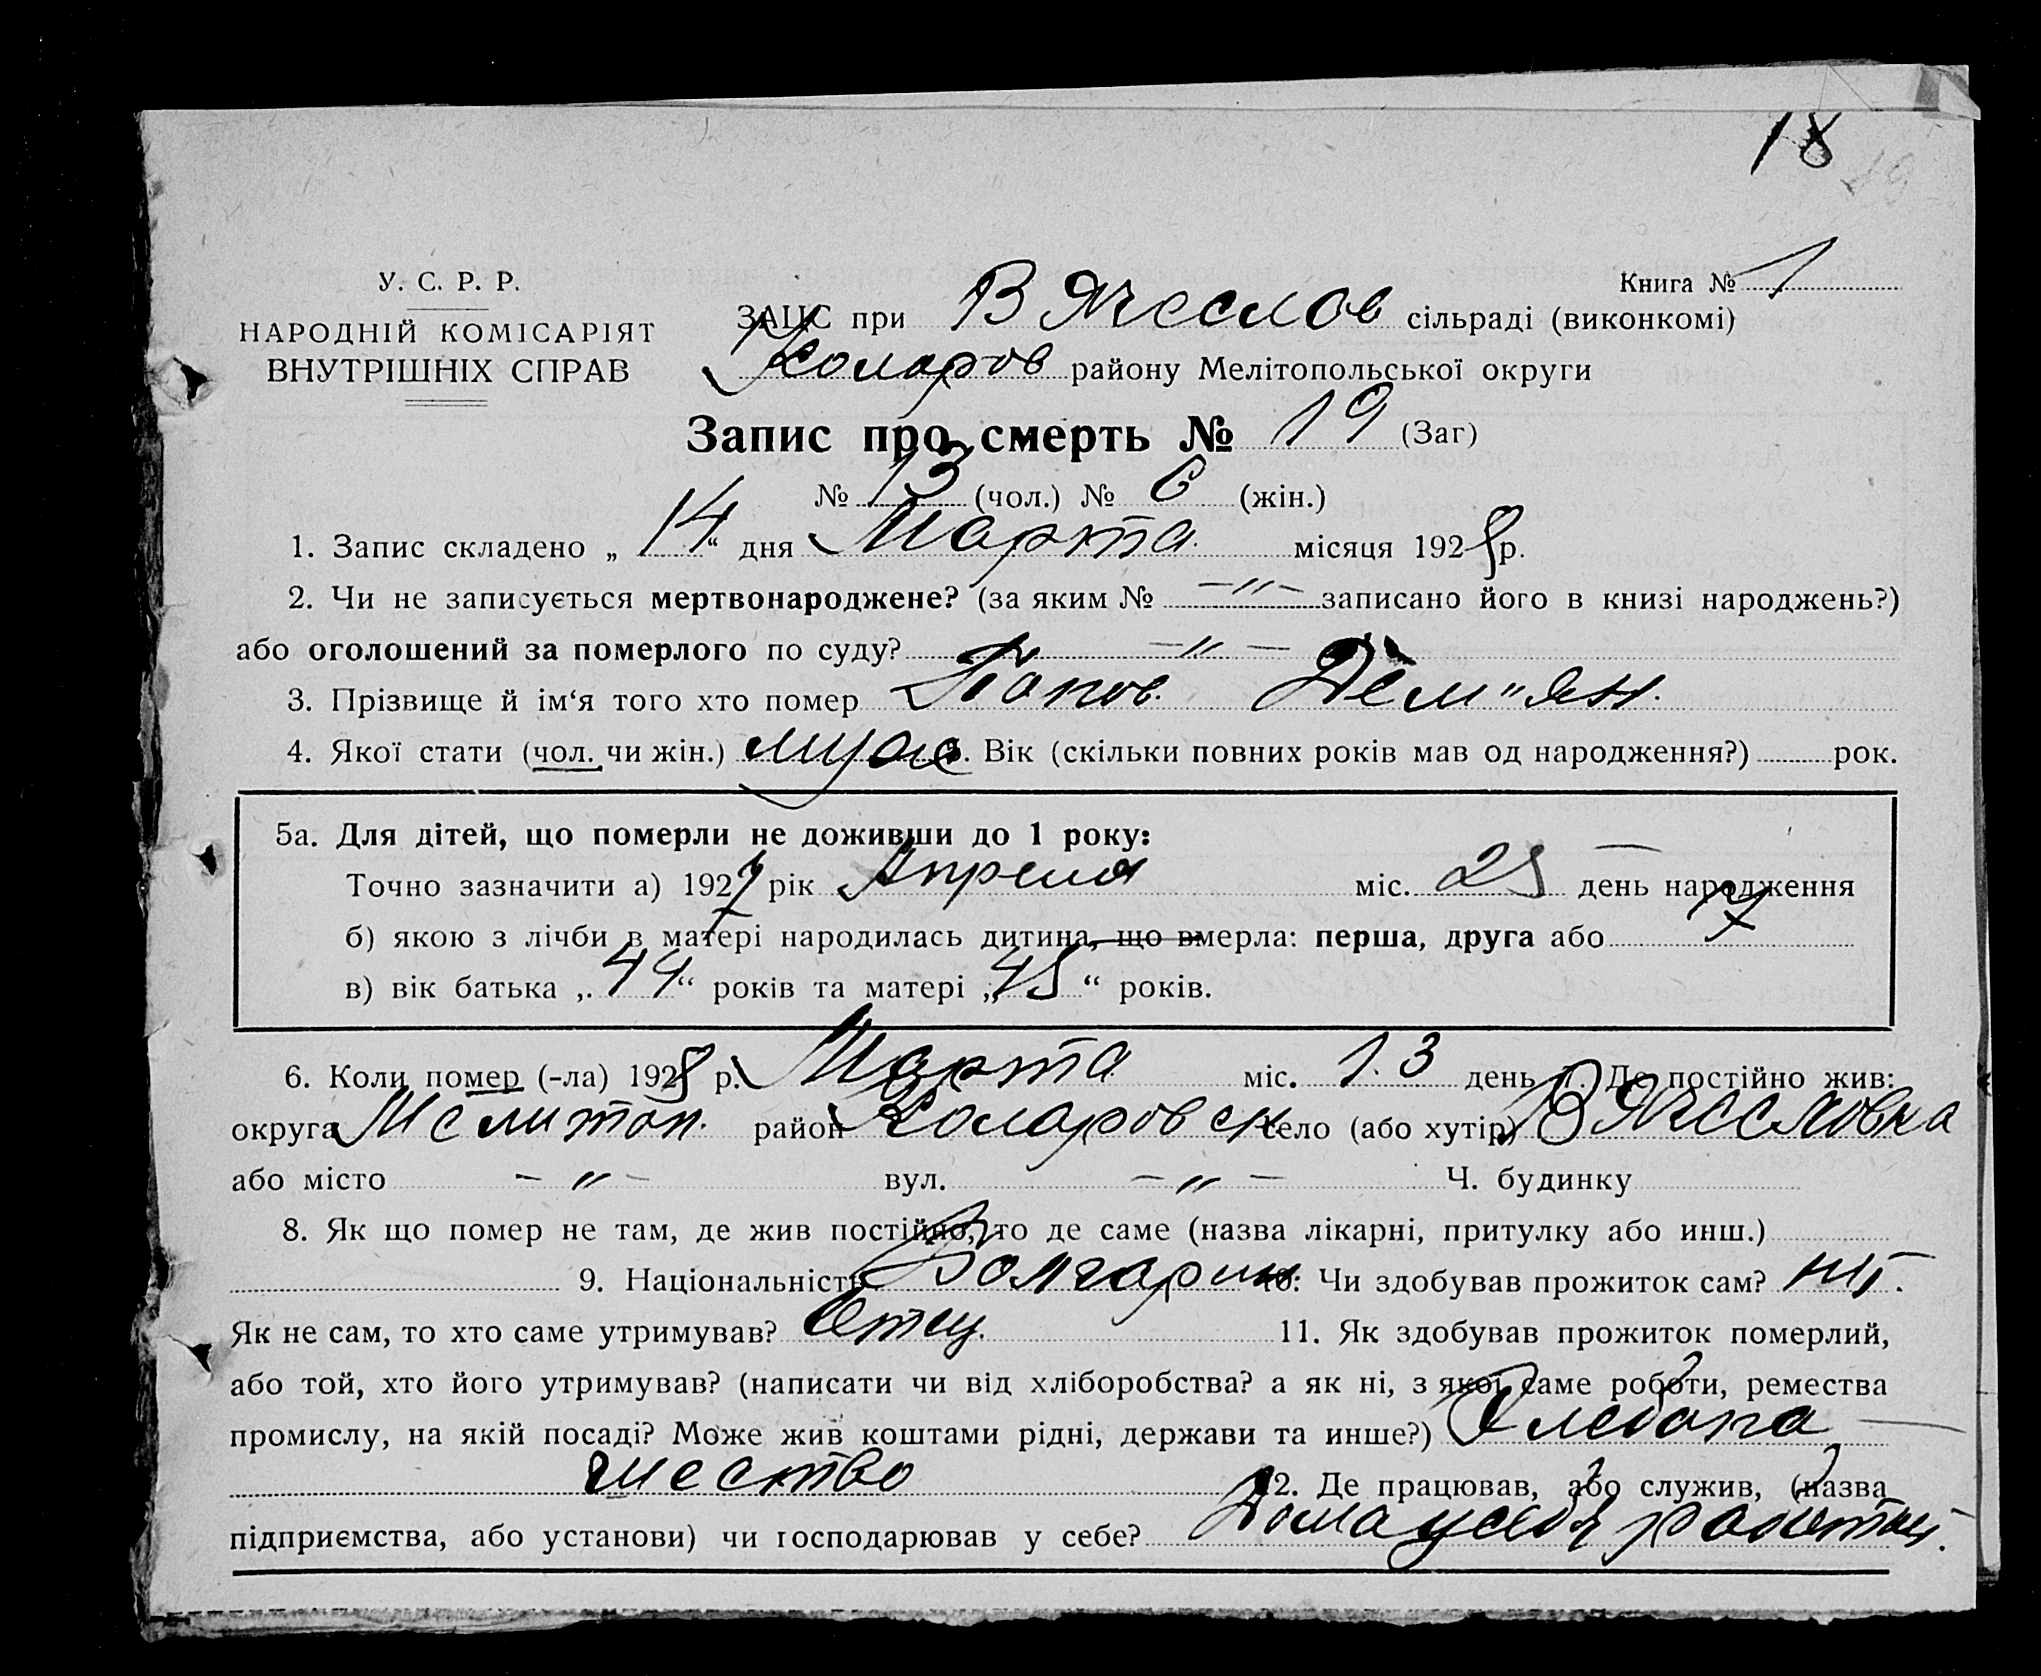 18
19
У. С. Р. Р.
Книга № 1
НАРОДНІЙ КОМІСАРІЯТ
ВНУТРІШНІХ СПРАВ
ЗАЦС при Вячеслов сільраді (виконкомі)
Коларов району Мелітопольської округи
Запис про смерть № 19 (Заг)
№ 13 (чол.) № 6 (жін.)
1. Запис складено „ 14 “ дня Марта місяця 1928 р.
2. Чи не записується мертвонароджене? (за яким № —„— записано його в книзі народжень?)
або оголошений за померлого по суду? —„—
3. Прізвище й ім‘я того хто помер Попов. Дем"ян.
4. Якої стати (чол. чи жін.) муж 5. Вік (скільки повних років мав од народження?) рок.
5а. Для дітей, що померли не доживши до 1 року:
Точно зазначити а) 1927 рік Апреля міс. 25 день народження
б) якою з лічби в матері народилась дитина, що вмерла: перша, друга або 7
в) вік батька „ 44 “ років та матері „ 45 “ років.
6. Коли помер (-ла) 1928 р. Марта міс. 13 день 7. Де постійно жив:
округа Мелитоп. район Коларовск село (або хутір) Вячесловка
або місто —„— вул. —„— Ч. будинку
8. Як що помер не там, де жив постійно, то де саме (назва лікарні, притулку або инш.)
9. Національність Болгарин 10. Чи здобував прожиток сам? ні.
Як не сам, то хто саме утримував? Отец. 11. Як здобував прожиток померлий,
або той, хто його утримував? (написати чи від хліборобства? а як ні, з якої саме роботи, ремества
промислу, на якій посаді? Може жив коштами рідні, держави та инше?) Хлебопа
шество 12. Де працював, або служив, (назва
підприємства, або установи) чи господарював у себе?